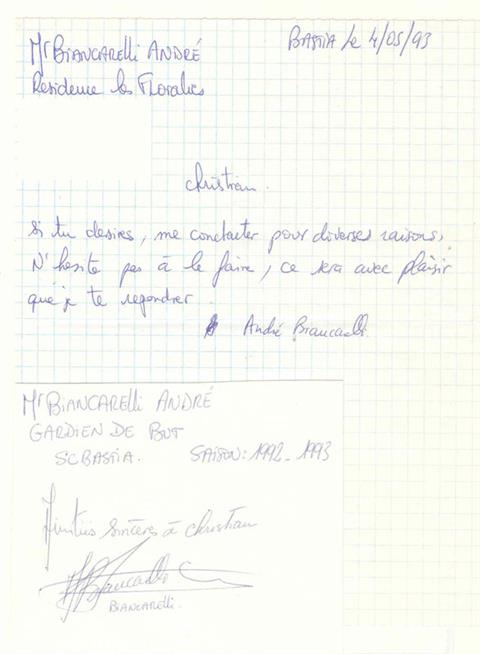 Mr BIANCARELLI ANDRÉ
BASTIA le 4/05/93
Residence les FLORALIES
Christian.
Si tu desires, me contacter pour diverses raisons,
N'hesite pas à le faire, ce sera avec plaisir
que je te repondrer.
André Biancarelli.
Mr BIANCARELLI ANDRÉ
GARDIEN DE BUT
SCBASTIA. SAISON: 1992-1993
Amitiés sincères à Christian
Biancarelli
BIANCARELLI.